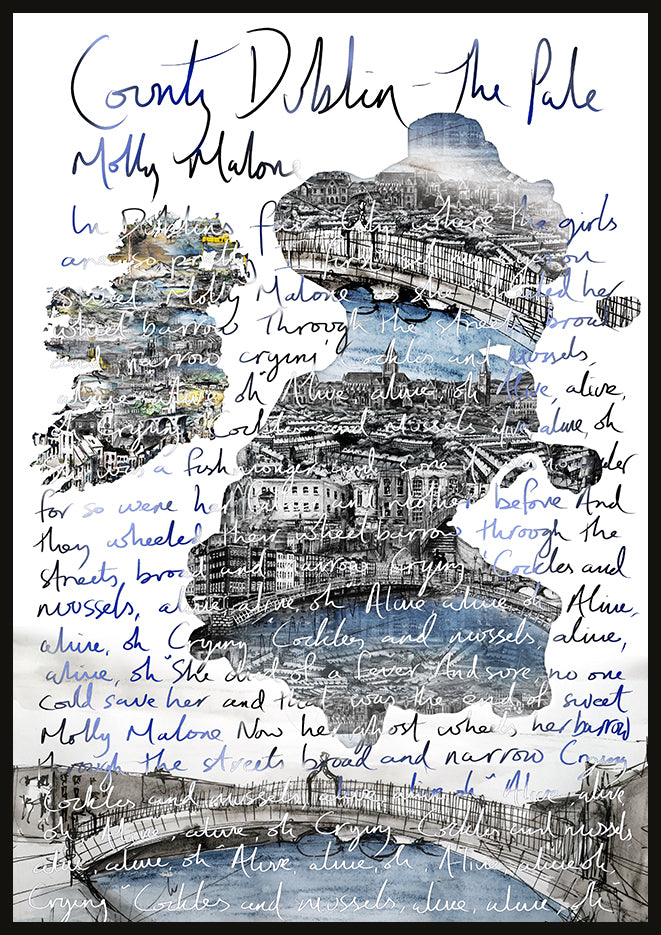 County Dublin - The Pale
Molly Malone
In Dublin's fair City where the girls
are so pretty I first set my eyes on
sweet Molly Malone as she wheeled her
wheel barrow Through the streets broad
and narrow crying "Cockles and mussels,
alive alive oh" "Alive, alive, oh Alive, alive,
oh" Crying "Cockles and mussels alive alive, oh
a fish monger and sure
for so were her and mother before And
they wheeled their wheel barrow through the
streets, broad and narrow Crying "Cockles and
mussels, alive, alive, oh" "Alive alive oh Alive,
alive, oh Crying "Cockles and mussels, alive,
alive, oh" She died of a fever And sure, no one
could save her and that was the end of sweet
Molly Malone Now her ghost wheels her barrow
through the streets broad and narrow Crying
"Cockles and mussels, alive, alive, oh" "Alive alive
oh Alive, alive, oh Crying "Cockles and mussels
alive, alive, oh "Alive, alive, oh, Alive alive oh
Crying "Cockles and mussels, alive, alive, oh